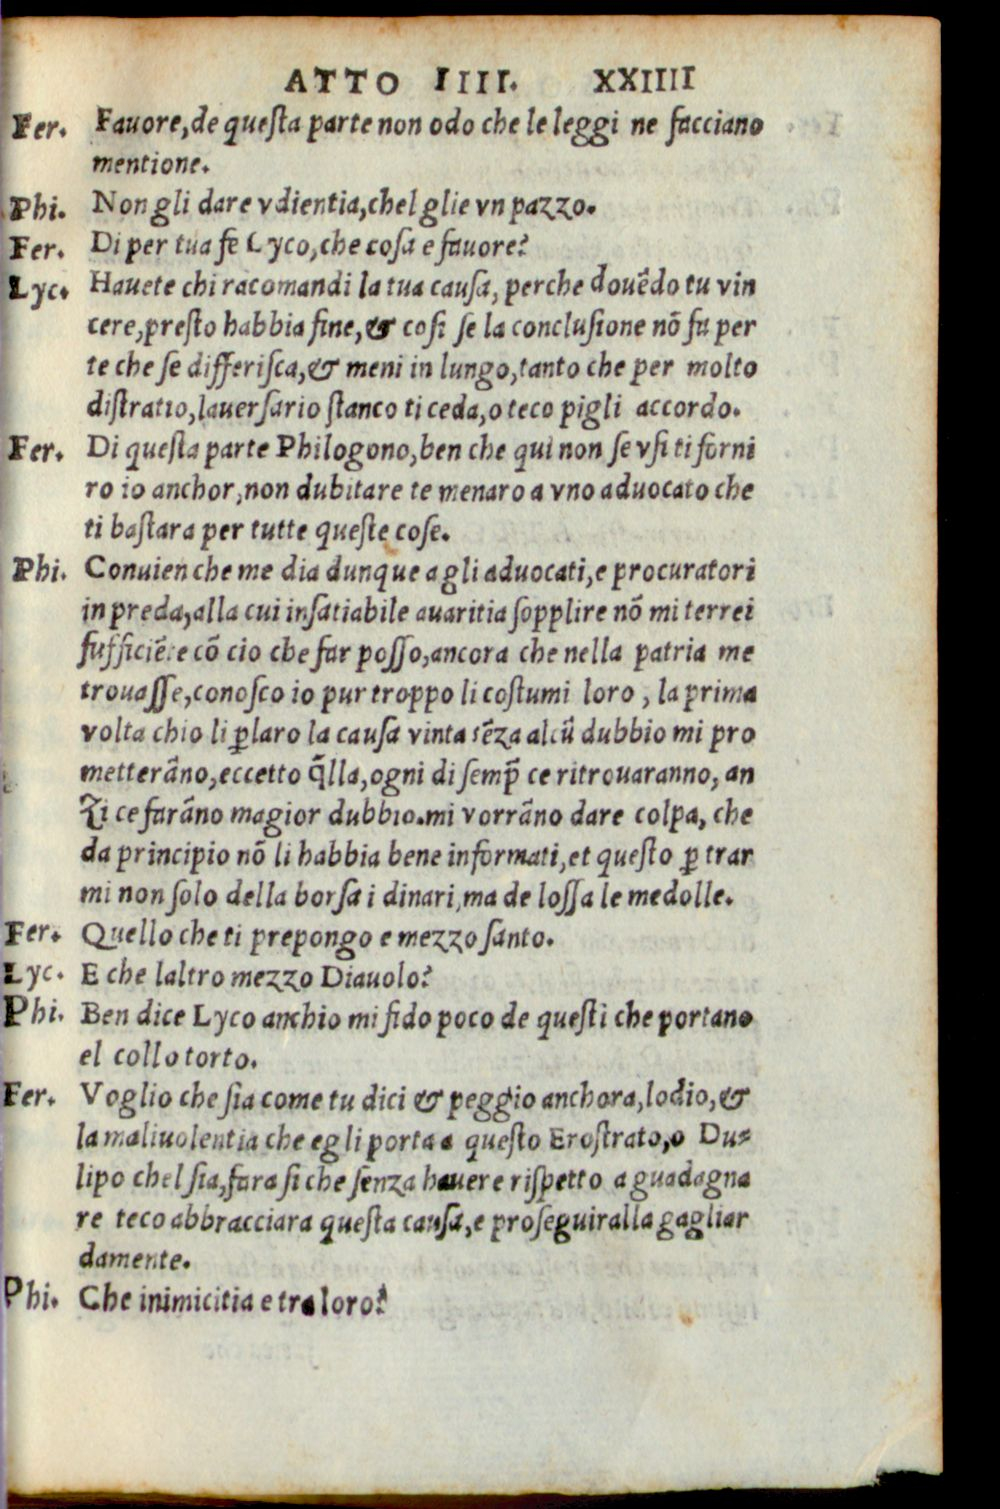 ATTO IIII. XXIIII
Fer. Fauore,de questa parte non odo che le leggi ne facciano
mentione.
Phi. Non gli dare vdientia,chel glie vn pazzo.
Fer. Di per tua fe Lyco,che cosa e fauore?
Lyc. Hauete chi racomandi la tua causa, perche douēdo tu vin
cere,presto habbia fine,& cosi se la conclusione nō fa per
te che se differisca,& meni in lungo,tanto che per molto
distratio,lauersario stanco ti ceda,o teco pigli accordo.
Fer. Di questa parte Philogono,ben che qui non se vsi ti forni
ro io anchor,non dubitare te menaro a vno aduocato che
ti bastara per tutte queste cose.
Phi. Conuien che me dia dunque a gli aduocati,e procuratori
in preda,alla cui insatiabile auaritia sopplire nō mi terrei
sufficiēte cō cio che far posso,ancora che nella patria me
trouasse,conosco io pur troppo li costumi loro , la prima
volta chio li ꝑlaro la causa vinta sēza alcū dubbio mi pro
metterāno,eccetto q̄lla,ogni di semp̄ ce ritrouaranno, an
Zi ce farāno magior dubbio.mi vorrāno dare colpa, che
da principio nō li habbia bene informati,et questo ꝑ trar
mi non solo della borsa i dinari,ma de lossa le medolle.
Fer. Quello che ti prepongo e mezzo santo.
Lyc. E che laltro mezzo Diauolo?
Phi. Ben dice Lyco anchio mi fido poco de questi che portano
el collo torto.
Fer. Voglio che sia come tu dici & peggio anchora,lodio,&
la maliuolentia che egli porta a questo Erostrato,o Du=
lipo chel sia,fara si che senza hauere rispetto a guadagna
re teco abbracciara questa causa,e proseguiralla gagliar
damente.
Phi. Che inimicitia e tra loro?